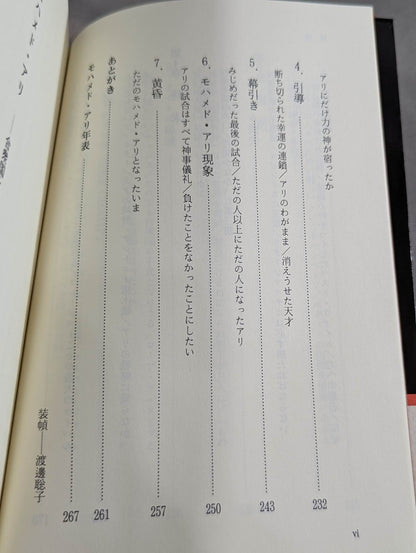 アリにだけ力の神が宿ったか
4. 引導 232
断ち切られた幸運の連鎖/アリのわがまま/消えうせた天才
5. 幕引き 243
みじめだった最後の試合/ただの人以上にただの人になったアリ
6. モハメド・アリ現象 250
アリの試合はすべて神事儀礼/負けたことをなかったことにしたい
7. 黄昏 257
ただのモハメド・アリとなったいま
あとがき 261
モハメド・アリ年表 267
装幀——渡邊聡子
vi